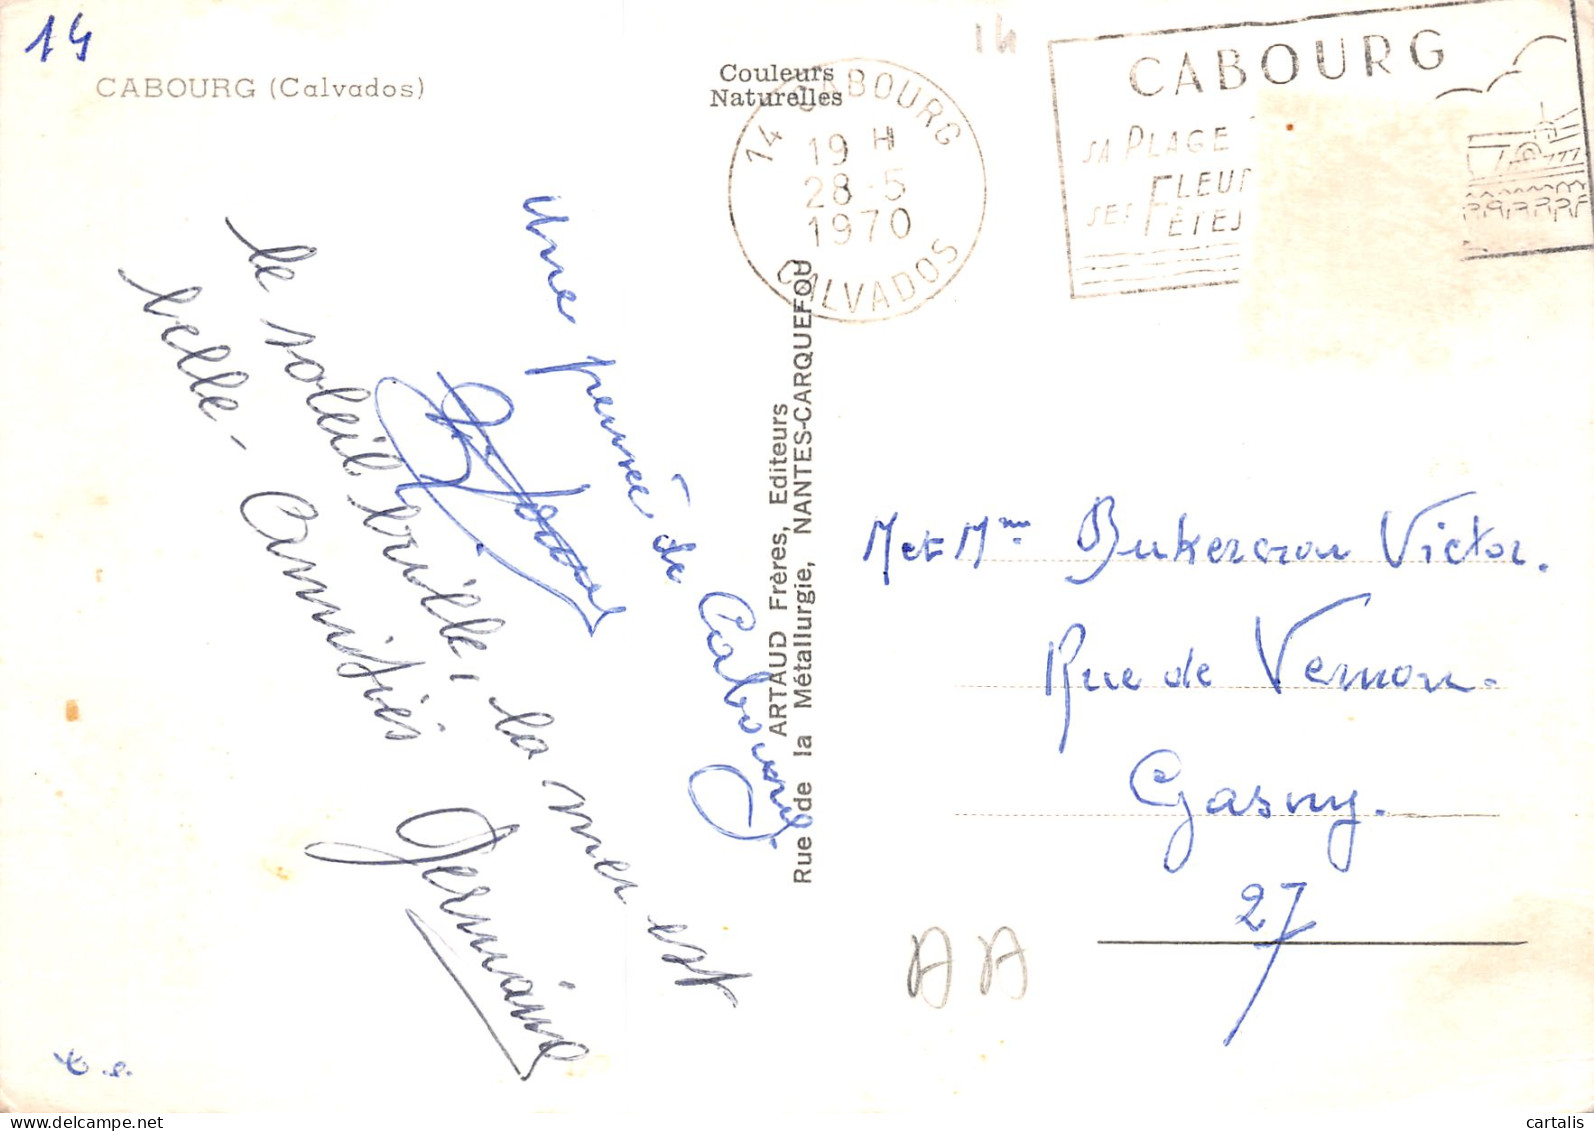 14
CABOURG (Calvados)
Couleurs
Naturelles
14
14 CABOURG
19 H
28-5
1970
CALVADOS
CABOURG
SA PLAGE
SES FLEUR
FÊTES
Une pensée de Cabourg
le soleil brille, la mer est
belle - Amitiés
Germaine
ARTAUD Frères, Editeurs
Rue de la Métallurgie, NANTES-CARQUEFOU
M et Mme Victor.
Rue de Vernon.
Gasny.
27
AA
cartalis